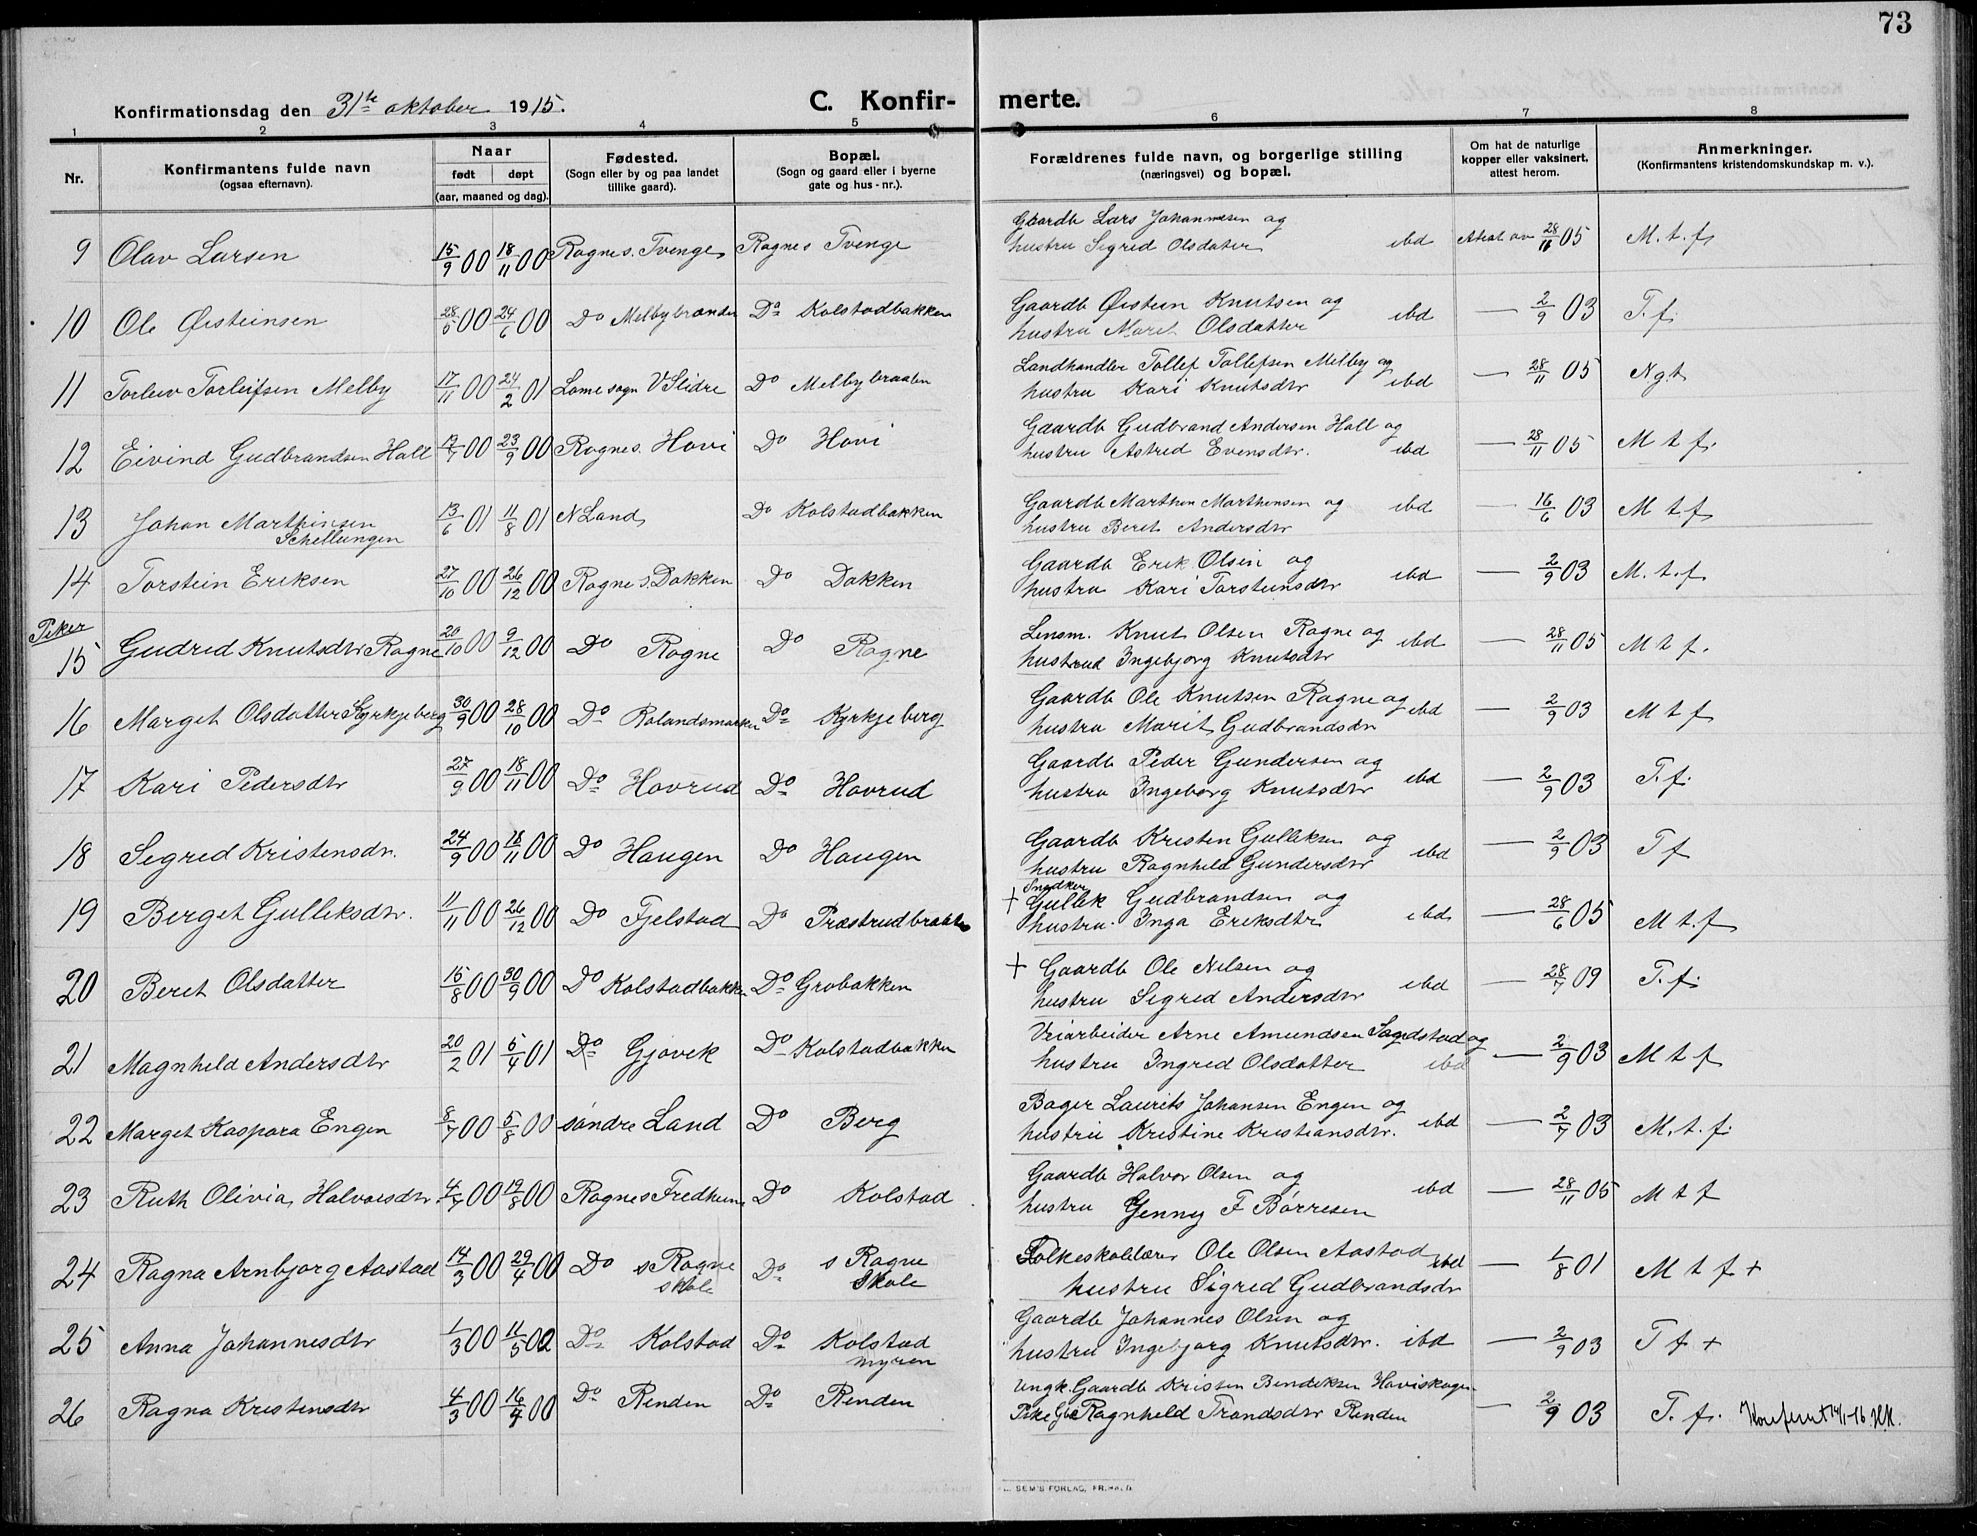 73
Konfirmationsdag den 31te oktober 1915.
C. Konfir- merte.
1 2 3 4 5 6 7 8
Nr.
Konfirmantens fulde navn
(ogsaa efternavn).
Naar
født døpt
(aar, maaned og dag).
Fødested.
(Sogn eller by og paa landet
tillike gaard).
Bopæl.
(Sogn og gaard eller i byerne
gate og hus-nr.).
Forældrenes fulde navn, og borgerlige stilling
(næringsvei) og bopæl.
Om hat de naturlige
kopper eller vaksinert,
attest herom.
Anmerkninger.
(Konfirmantens kristendomskundskap m. v.).
9 Olav Larsen 15/9 00 18/11 00 Rogne s. Tvenge Rogne s Tvenge
Gaardb Lars Johannesen og
hustru Sigrid Olsdatter ibd Atest av 28/11 05 M. t. f
10 Ole Øisteinsen 28/5 00 24/6 00 Do Melbybraaten Do Kolstadbakken
Gaardb Øistein Knutsen og
hustru Marit Olsdatter ibd — 2/9 03 T. f.
11 Torleiv Torleifsen Melby 17/11 00 24/2 01 Lome sogn V Slidre Do Melbybraaten
Landhandler Tollef Tollefsen Melby og
hustru Kari Knutsdtr ibd — 28/11 05 Ngt
12 Eivind Gudbrandsen Hall 17/7 00 23/9 00 Rogne s. Hovi Do Hovi
Gaardb Gudbrand Andersen Hall og
hustru Astrid Evensdtr. ibd — 28/11 05 M t f.
13 Johan Marthinsen
Schellungen 13/6 01 11/8 01 N Land Do Kolstadbakken
Gaardb Marthin Marthinsen og
hustru Beret Andersdtr ibd — 16/6 03 M t f
14 Torstein Eriksen 27/10 00 26/12 00 Rogne s. Dokken Do Dokken
Gaardb Erik Olsen og
hustru Kari Torsteinsdtr ibd — 2/9 03 M. t. f
Piker
15 Gudrid Knutsdtr Rogne 20/10 00 9/12 00 Do Rogne Do Rogne
Lensm. Knut Olsen Rogne og
hustrud Ingebjorg Knutsdtr ibd — 28/11 05 M t f.
16 Marget Olsdatter Kyrkjeberg 30/9 00 28/10 00 Do Rolandsmarken Do Kyrkjeberg
Gaardb Ole Knutsen Rogne og
hustru Marit Gudbrandsdtr ibd — 2/9 03 M t f
17 Kari Pedersdtr 27/9 00 18/11 00 Do Hovrud Do Hovrud
Gaardb Peder Gundersen og
hustru Ingeborg Knutsdtr ibd — 2/9 03 T. f.
18 Sigrid Kristensdtr. 24/9 00 18/11 00 Do Haugen Do Haugen
Gaardb Kristen Gulliksen og
hustru Ragnhild Gundersdtr ibd — 2/9 03 T f
19 Berget Gulliksdtr. 11/11 00 26/12 00 Do Fjelstad Do Præstrudbraaten
Snedker
+ Gullik Gudbrandsen og
hustru Inga Eriksdtr ibd — 28/6 05 M t. f
20 Beret Olsdatter 15/8 00 30/9 00 Do Kolstadbakken Do Grobakken
+ Gaardb Ole Nilsen og
hustru Sigrid Andersdtr ibd — 28/7 09 T. f.
21 Magnhild Andersdtr 20/2 01 5/4 01 Do Gjøvik Do Kolstadbakken
Veiarbeider Arne Amundsen Sagdstad og
hustru Ingrid Olsdatter ibd — 2/9 03 M t f
22 Marget Kaspara Engen 8/7 00 5/8 00 søndre Land Do Berg
Bager Laurits Johansen Engen og
hustru Kristine Kristiansdtr. ibd — 2/7 03 M. t. f.
23 Ruth Olivia Halvorsdtr 4/7 00 19/8 00 Rogne s Fredheim Do Kolstad
Gaardb Halvor Olsen og
hustru Jenny F Børresen ibd — 28/11 05 M t f
24 Ragna Arnbjorg Aastad 14/3 00 29/4 00 Do s Rogne
skole Do s Rogne
skole
Folkeskolelærer Ole Olsen Aastad ibd
hustru Sigrid Gudbrandsdtr — 1/8 01 M t f +
25 Anna Johannesdtr 1/3 00 11/5 00 Do Kolstad Do Kolstad
myren
Gaardb Johannes Olsen og
hustru Ingebjorg Knutsdtr. ibd — 2/9 03 T f +
26 Ragna Kristensdtr 4/3 00 16/4 00 Do Renden Do Renden
Ungk. Gaardb Kristen Bendiksen Haviskogen
Pike Gbd Ragnhild Trondsdtr Renden — 2/9 03 T. f. Konfirmert 14/1-16. HK.
SEM'S FORLAG, FR.HALD.